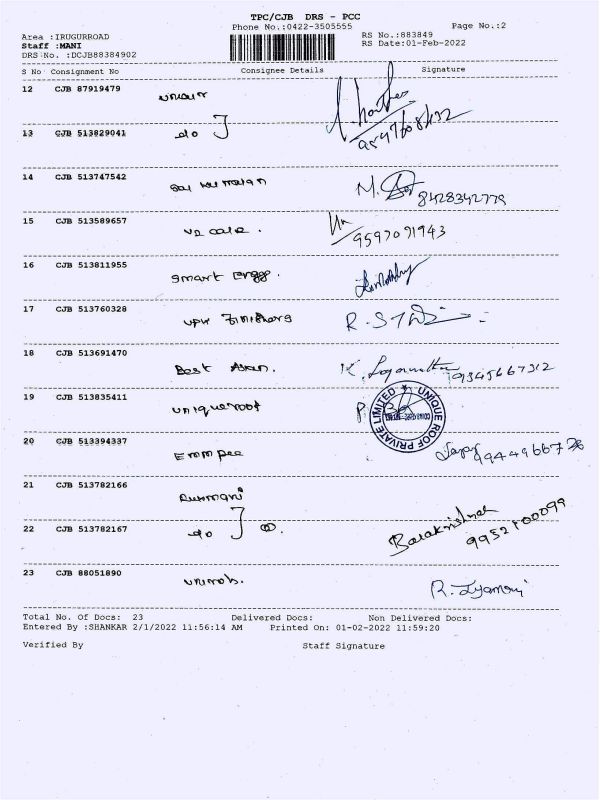 TPC/CJB DRS - PCC
Phone No.:0422-3505555 Page No.:2
Area :IRUGURROAD RS No.:883849
Staff :MANI RS Date:01-Feb-2022
DRS No. :DCJB88384902
S No Consignment No Consignee Details Signature
12 CJB 87919479
13 CJB 513829041 do
14 CJB 513747542 Sai kumaran M. 8428342779
15 CJB 513589657 9597091943
16 CJB 513811955 Smart Engg.
17 CJB 513760328 R.
18 CJB 513691470 Best Asian. K. 9345667312
19 CJB 513835411 uniqueroof P.
UNIQUE ROOF PRIVATE LIMITED
20 CJB 513394337 Emm pee
21 CJB 513782166
22 CJB 513782167 do Balakrishnan
9952100099
23 CJB 88051890 R.
Total No. Of Docs: 23 Delivered Docs: Non Delivered Docs:
Entered By :SHANKAR 2/1/2022 11:56:14 AM Printed On: 01-02-2022 11:59:20
Verified By Staff Signature